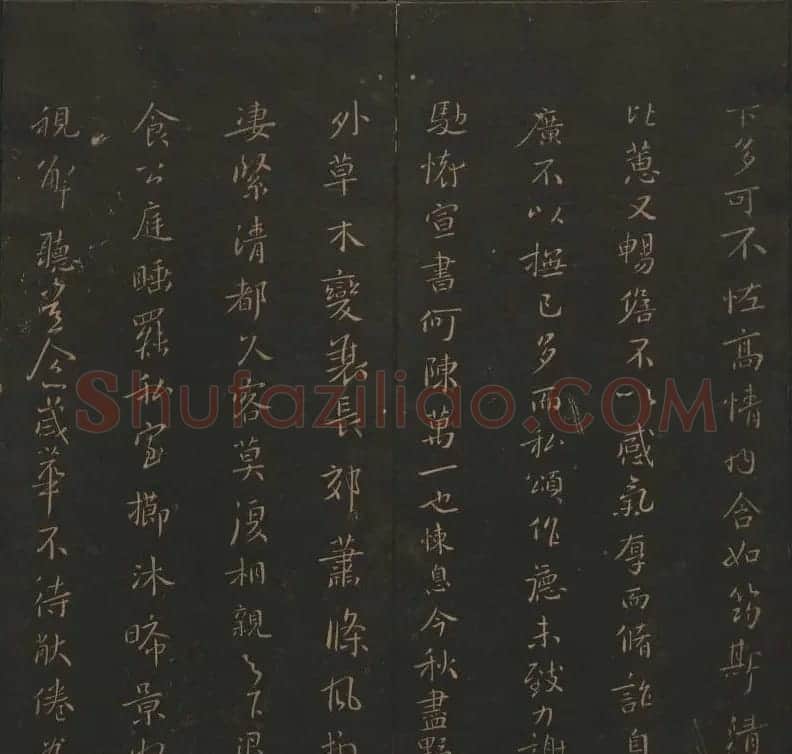 下多可不恠高情内含如筠斯清
比蕙又暢儋不以感氣厚而脩詐自
廣不以撫已多而私頌作德未致力謝
馳情宣書何陳萬一也悚息今秋盡野
外草木變衰長郊蕭條風
凄緊清都久客莫復相親足下退
食公庭睡罷私室擲沐晞景
視解聽念歲華不待猒倦
Shufaziliao.COM